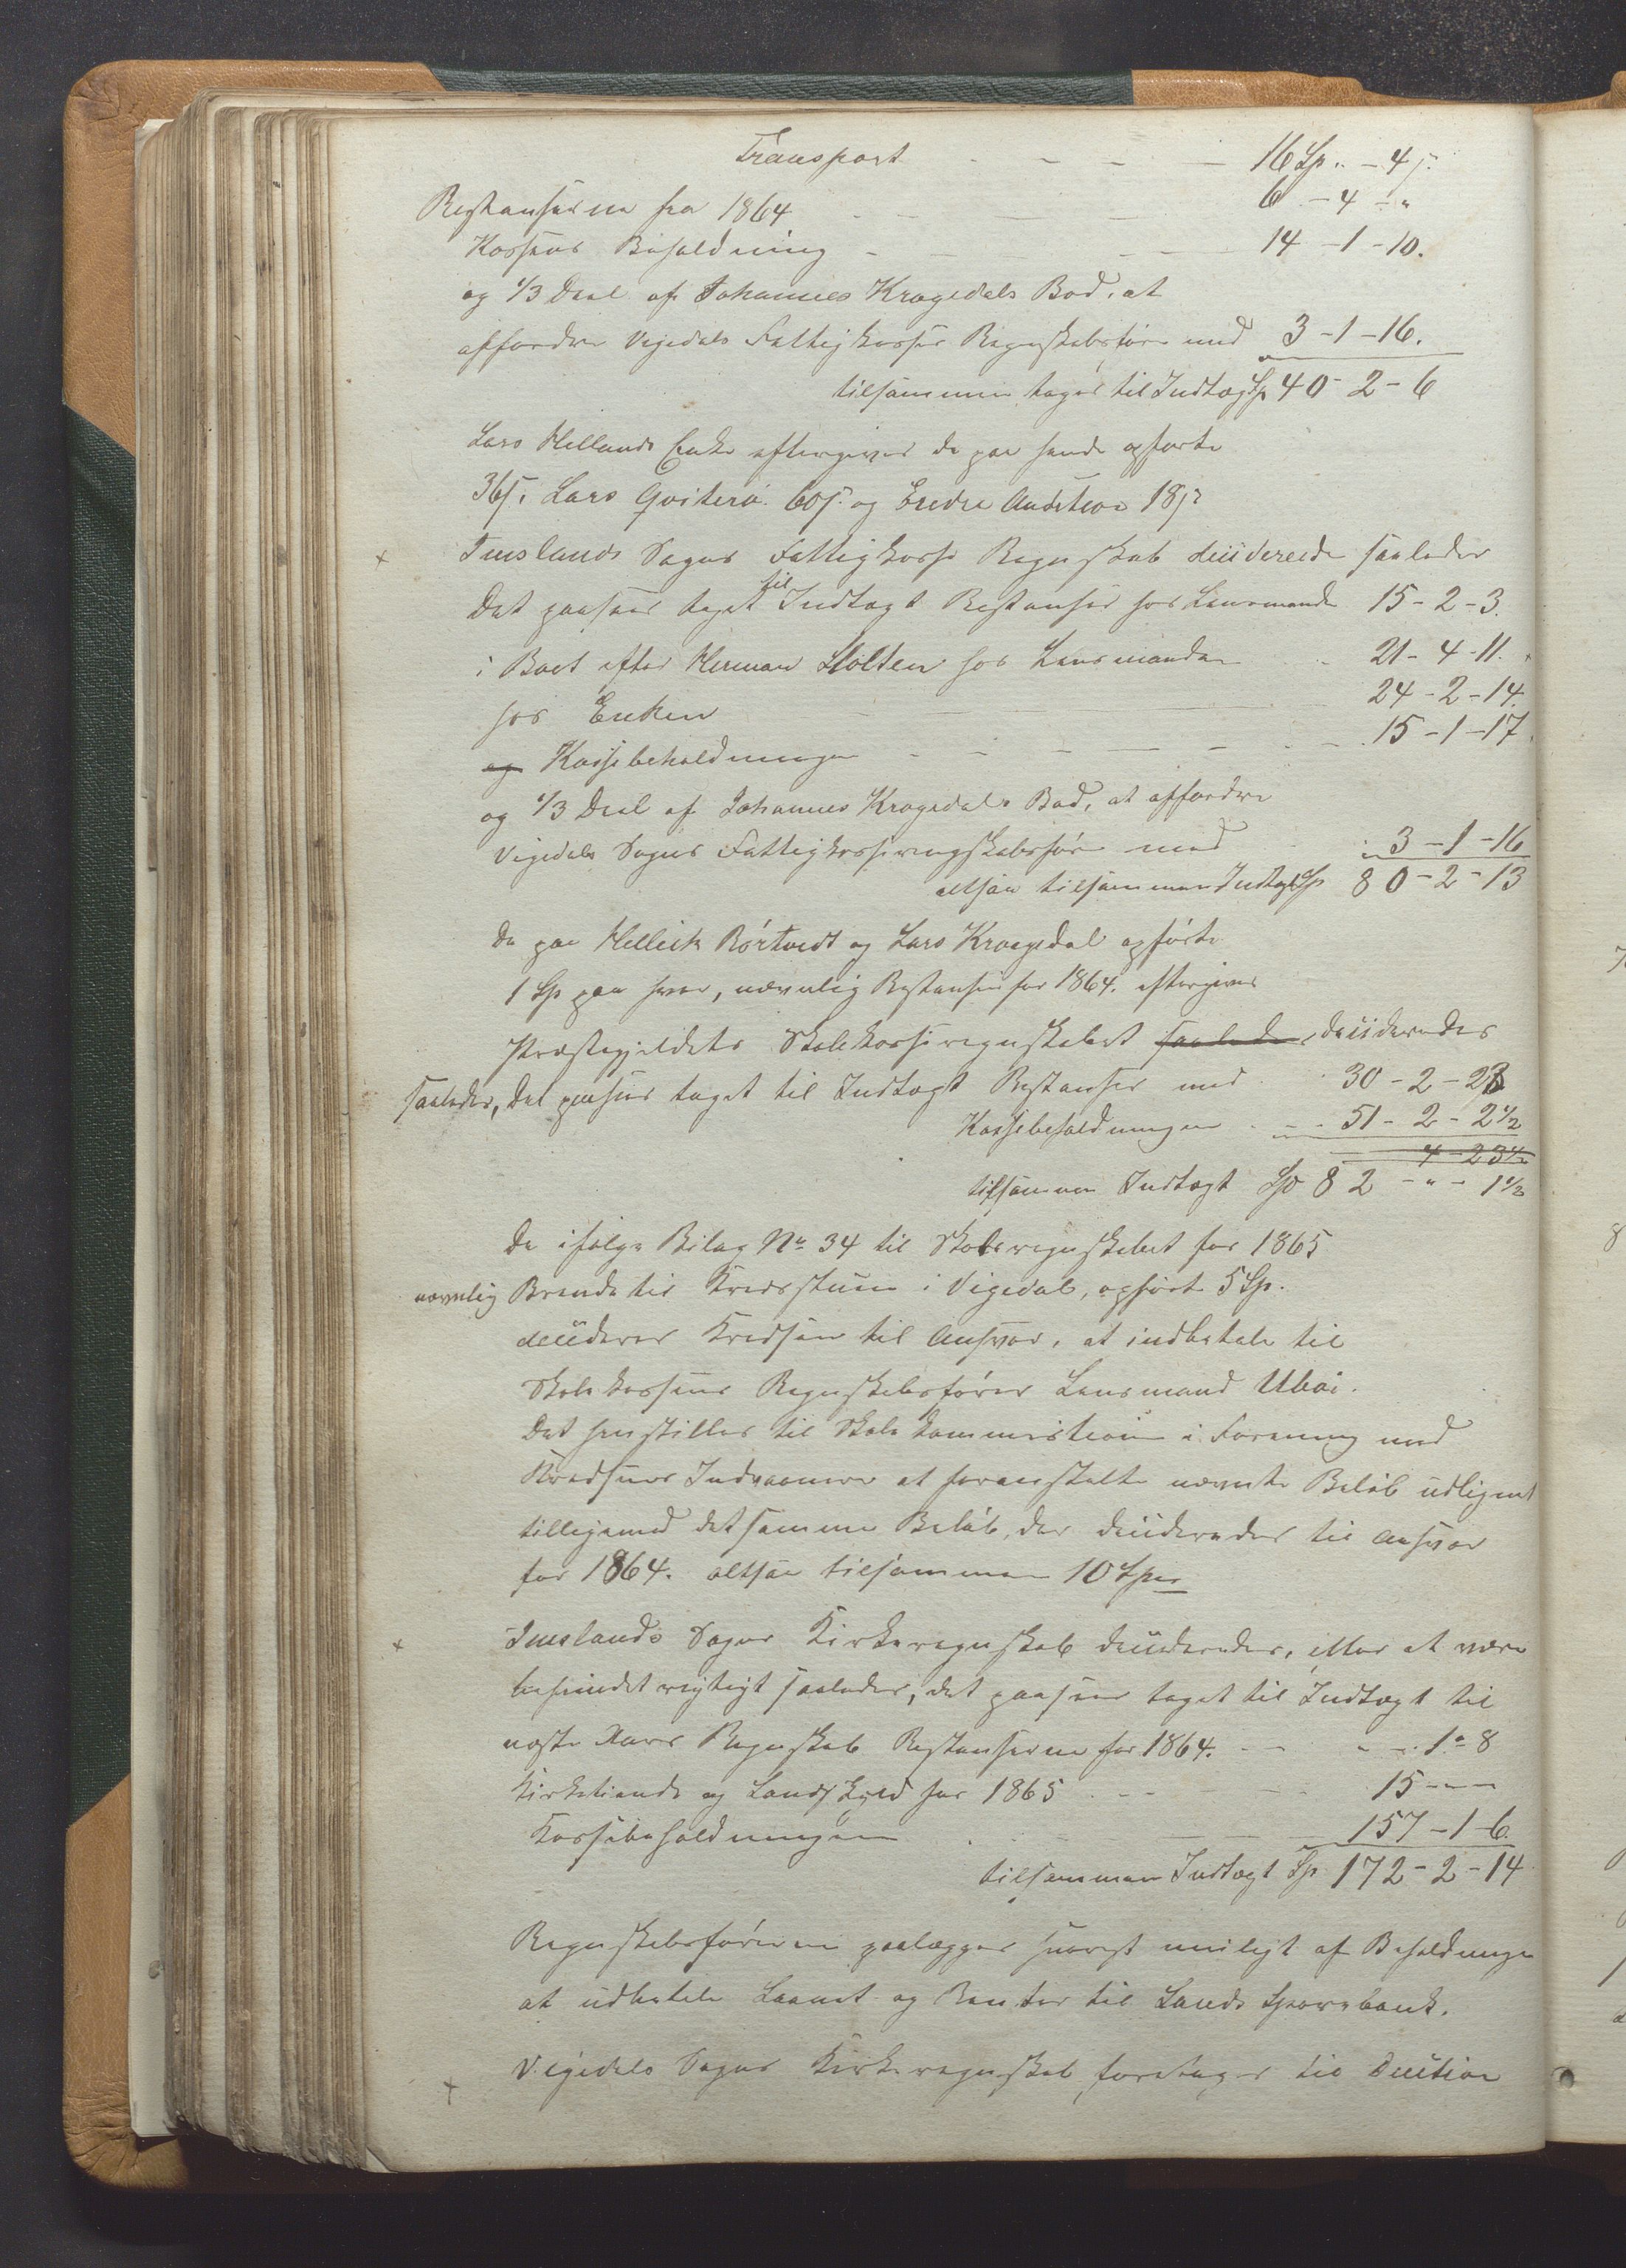 Transport - - - - 16 Sp " - 4 s.
Restanserne fra 1864 - - - 6 - 4 - "
Kassens Beholdning - - - 14 - 1 - 10.
og 1/3 Deel af Johannes Kragedals Bod, at
affordre Vigedals Fattigkasses Regnskabsfører med 3 - 1 - 16.
tilsammen tages til Indtægt Sp 40 - 2 - 6
Lars Hellands Enke eftergives de paa hende opførte
36 s. Lars Qviterø 60 s. og Endre 18 s
Imslands Sogns Fattigkasse Regnskab deciderede saaledes
Det paasees taget til Indtægt Restanser hos Lensmanden 15 - 2 - 3.
i Boet efter Herman Stolten hos Lensmanden - 21 - 4 - 11.
hos Enken - 24 - 2 - 14.
og Kassebeholdningen - - - - 15 - 1 - 17
og 1/3 Deel af Johannes Kragedals Bod, at affordre
Vigedals Sogns Fattigkasseregnskabsfører med 3 - 1 - 16
altsaa tilsammen Indtægt Sp 80 - 2 - 13
De paa Helleik Rørtvedt og Lars Kragedal opførte
1 Sp paa hver, nævnlig Restansen for 1864. eftergives
Præstegjeldets Skolekasseregnskabet saaledes, decideredes
saaledes, Det paasees taget til Indtægt Restanser med 30 - 2 - 23
Kassebeholdningen - - 51 - 2 - 2 1/2
4 - 23 1/2
tilsammen Indtægt Sp 82 - " - 1 1/2
Da ifølge Bilag No 34 til Skoleregnskabet for 1865
nævnlig Brænde til Kredsstuen i Vigedal, opført 5 Sp.
decideres Kredsen til Ansvar, at indbetale til
Skolekassens Regnskabsfører Lensmand Ubøi.
Det henstilles til Skolekommissionen i Forening med
Kredsens Indvaanere at foranstalte nævnte Beløb udlignet
tilligemed det samme Beløb, der decideredes til Ansvar
for 1864. altsaa tilsammen 10 Spd
Imslands Sogns Kirkeregnskab decideredes, efter at være
befundet rigtigt saaledes, det paasees taget til Indtægt til
næste Aars Regnskab Restanserne for 1864. - " - 1 - 8
Kirketiende og Landskyld for 1865 - - 15 - " -
Kassebeholdningen - - 157 - 1 - 6
tilsammen Indtægt Sp 172 - 2 - 14
Regnskabsføreren paalægges snarest muligt af Beholdningen
at udbetale Laanet og Renter til Sands Sparebank.
Vigedals Sogns Kirkeregnskab foretages til Decision